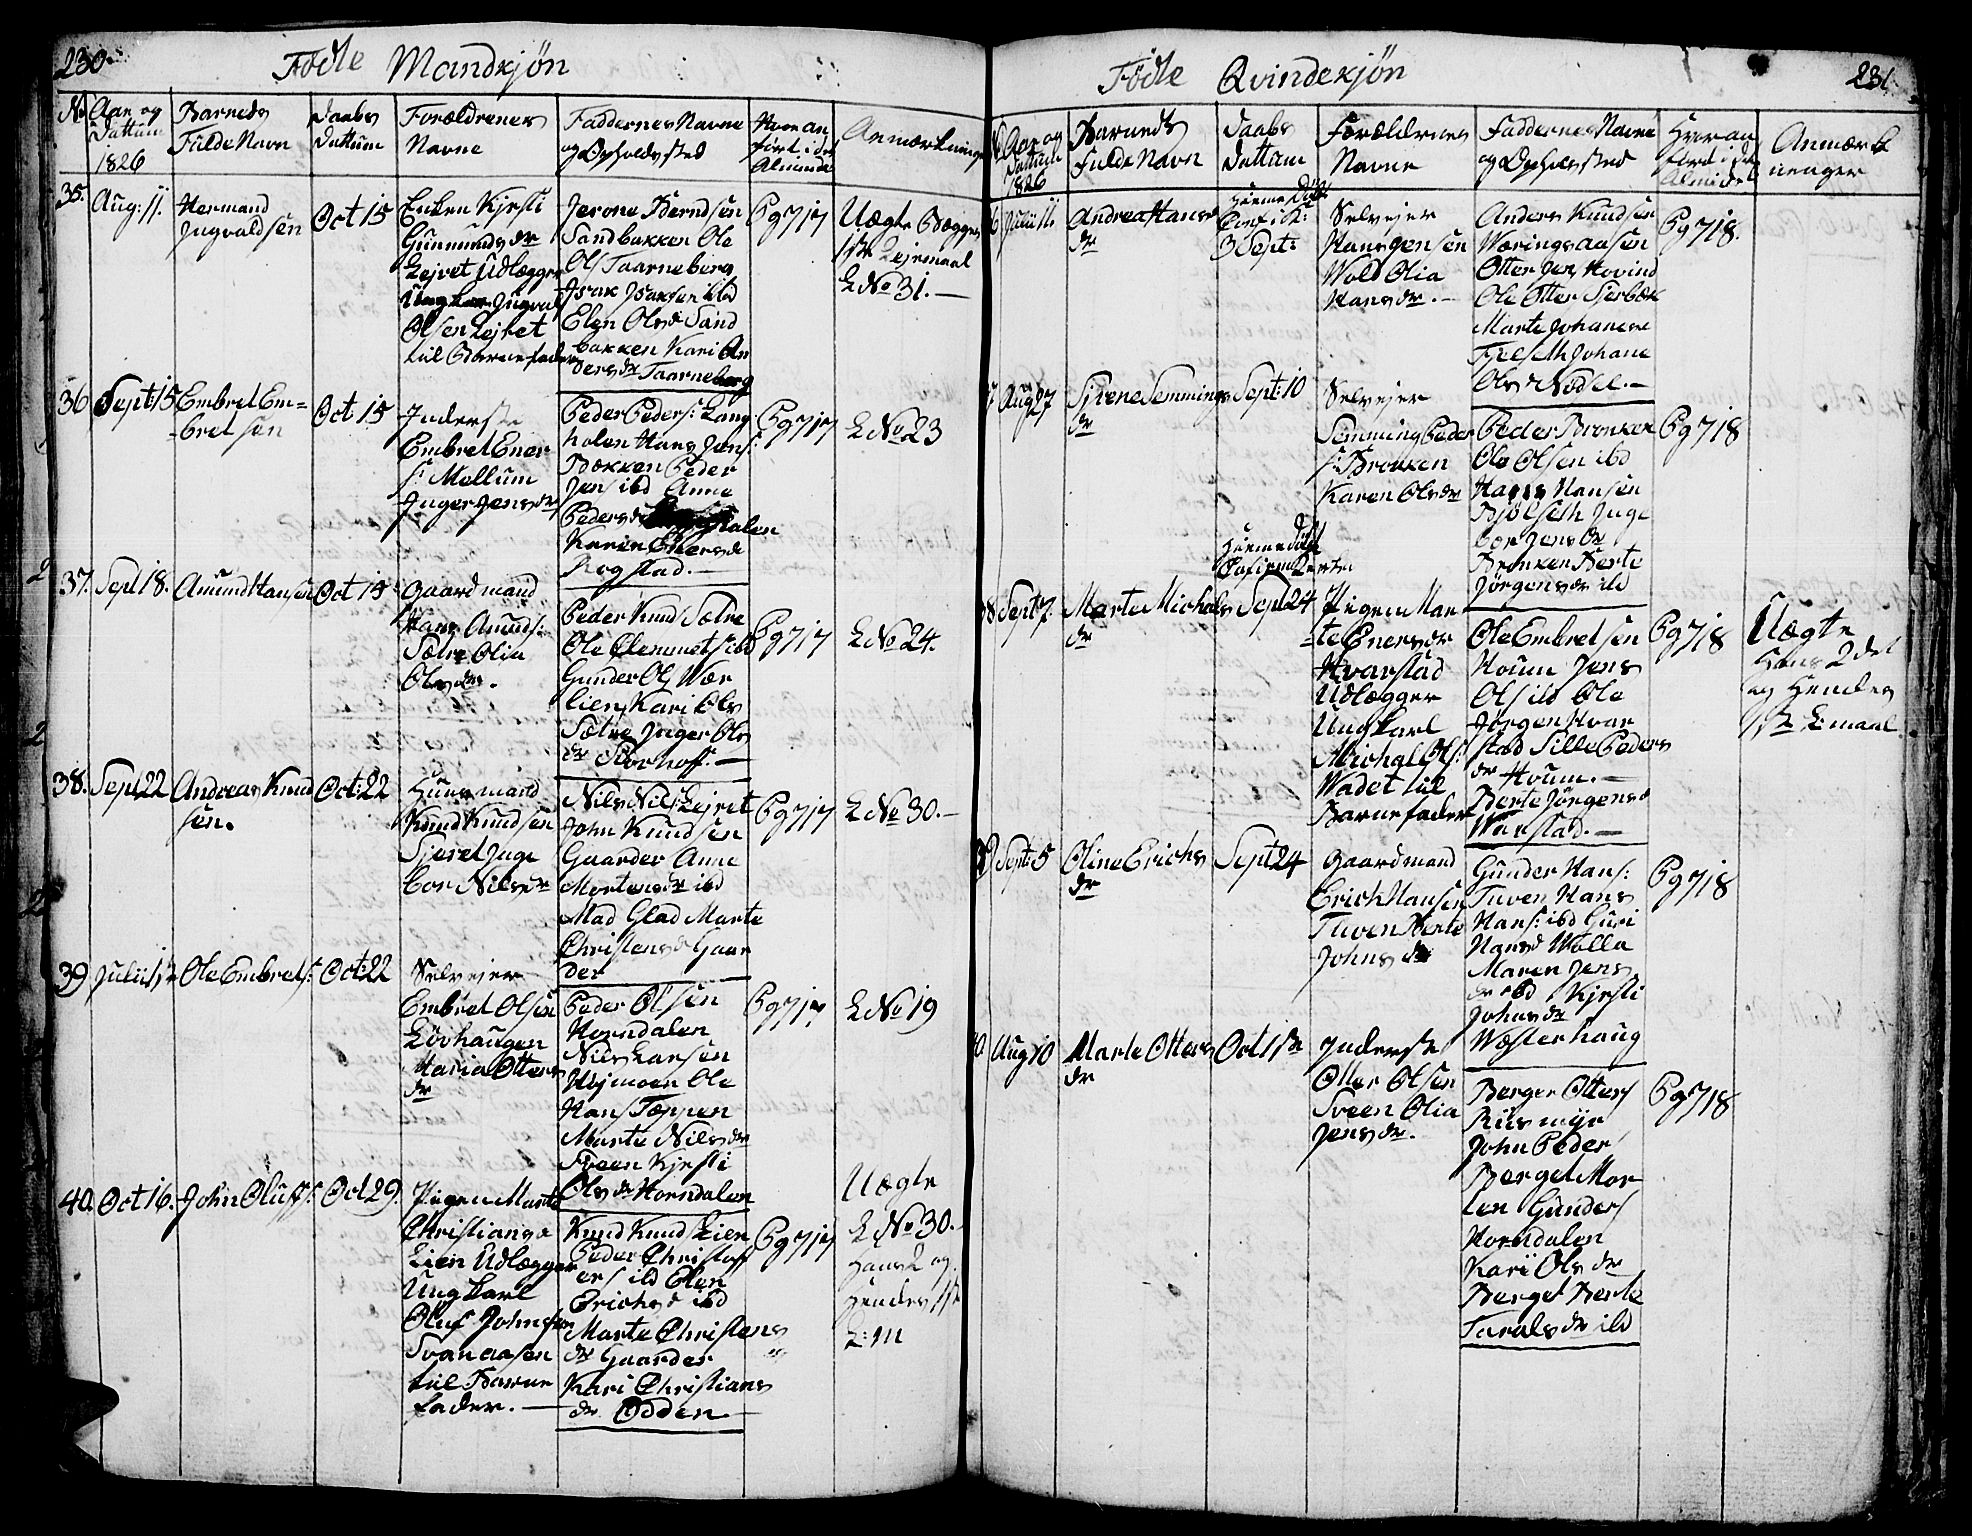 230.
Födte Mandkjön
No
Aar og
Dattum
1826
Barnets
Fulde Navn
Daabs
Dattum
Forældrenes
Navne
Faddernes Navne
og Opholdssted
Hvor an
fört i det
Almind:
Anmærkninger
35.
Aug: 11.
Hermand
Ingvaldsen
Oct 15
Enken Kjersti
Gunmundsdr
Lejret Udlægger
Ungkar Ingval
Olsen Lejret
til Barnefader
Jerone Berndsen
Sandbakken Ole
Ols Taarneberg
Isak Isaksen ibd
Elen Olsd Sand
bakken Kari An
dersdr Taarneberg
Pg 717
Uægte Begges
1ste Lejemaal
L No 31.—
36
Sept: 15
Embret Em=
=bretsen
Oct 15
Inderste
Embret Ener
s: Mellum
Inger Jensdr
Peder Peders: Lang
holen Hans Jens:
Bekken Peder
Jens ibd Anne
Pedersd holen
Karen Enersd
Rogstad.—
Pg 717
L No 23
37.
Sept 18.
Amund Hansen
Oct 15
Gaardmand
Hans Amunds:
Sætre Olia
Olsdr.
Peder Knud Sætre
Ole Clemmets ibd
Gunder Ols Wær
lien Kari Ols
Sætre Inger Ols
dr Storhoff.—
Pg 717
L No 24.
38.
Sept 22
Andreas Knud
sen.
Oct: 22
Huusmand
Knud Knudsen
Sjeret Inge
bor Nilsdr
Nils Nils: Lejret
John Knudsen
Gaarder Anne
Mortensdr ibd
Mad Glad Marte
Christensd Gaar
der
Pg 717
L No 30.—
39
Julii 12
Ole Embrets:
Oct: 22
Selvejer
Embret Olsen
Lövhaugen
Maria Otters
dr
Peder Olsen
Horndalen
Nils Larsen
Højmoen Ole
Hans Tæppen
Marte Nilsdr
Sveen Kjersti
Olsdr Horndalen
Pg 717
L No 19
40.
Oct 16.
John Olufs:
Oct 29.
Pigen Marte
Christiansd
Lien Udlægger
Ungkarl
Oluf Johnsen
Svanaasen
til Barne
fader.—
Knud Knuds Lien
Peder Christoff
ers ibd Elen
Erichsd ibd
Marte Christens
dr Gaarder
Kari Christians
dr Odden—
Pg 717
Uægte
L No 30.—
Hans 2 og
Hendes 1ste
L: m
231.
Födte Qvindekjön
Aar og
Dattum
1826
Barnets
Fulde Navn
Daabs
Dattum
Forældrenes
Navne
Faddernes Navne
og Opholdssted
Hvor an
fört i det
Almindel
Anmærk
ninger
6
Julii 11
Andrea Hans
dr
Hjemme Döbt
Confict:
3 Sept:
Selvejer
Hans Jensen
Wold Olia
Hansdr.—
Anders Knudsen
Wæringsaasen
Otter Jens Hovind
Ole Otter Sierbæk
Marte Johanese
Fjelseth Johane
Olsd Nödel.—
Pg 718.
7
Aug 27
Sirene Semmings
dr
Sept: 10
Selvejer
Semming Peder
s: Bronken
Karen Olsdr
Peder Bronken
Ole Olsen ibd
Hans Hansen
Bjölseth Inge
bor Jensdr
Bronken Berte
Jörgensdr ibd
Pg 718
8
Sept 7.
Marte Michels
dr
Hjemme Döbt
Sept 24
Pigen Mar
=te Enersdr
Hvarstad
Udlægger
Ungkarl
Michel Ols:
Wadet til
Barnefader
Ole Embretsen
Houm Jens
Ols ibd Ole
Jörgens Hvar
stad Sille Peders
dr Houm.—
Berte Jörgensd
Warstad.—
Pg 718
Uægte
Hans 2det
og Hendes
1ste L: maal
39
Sept: 5
Oline Erichs
dr
Sept 24
Gaardmand
Erich Hansen
Tuven Berte
Johnsdr
Gunder Hans:
Tuven Hans
Hans: ibd Guri
Hansd Wolla
Maren Jens
dr ibd Kjersti
Johnsdr
Wæsterhaug
Pg 718
Aug 10
Marte Otters
dr
Oct 1ste
Inderste
Otter Olsen
Sveen Olia
Jensdr.
Berger Otters
Riismyr
John Peder
Berget Mor
ten Gunders
Horndalen
Kari Olsdr
Berget Berte
Taralsdr ibd
Pg 718